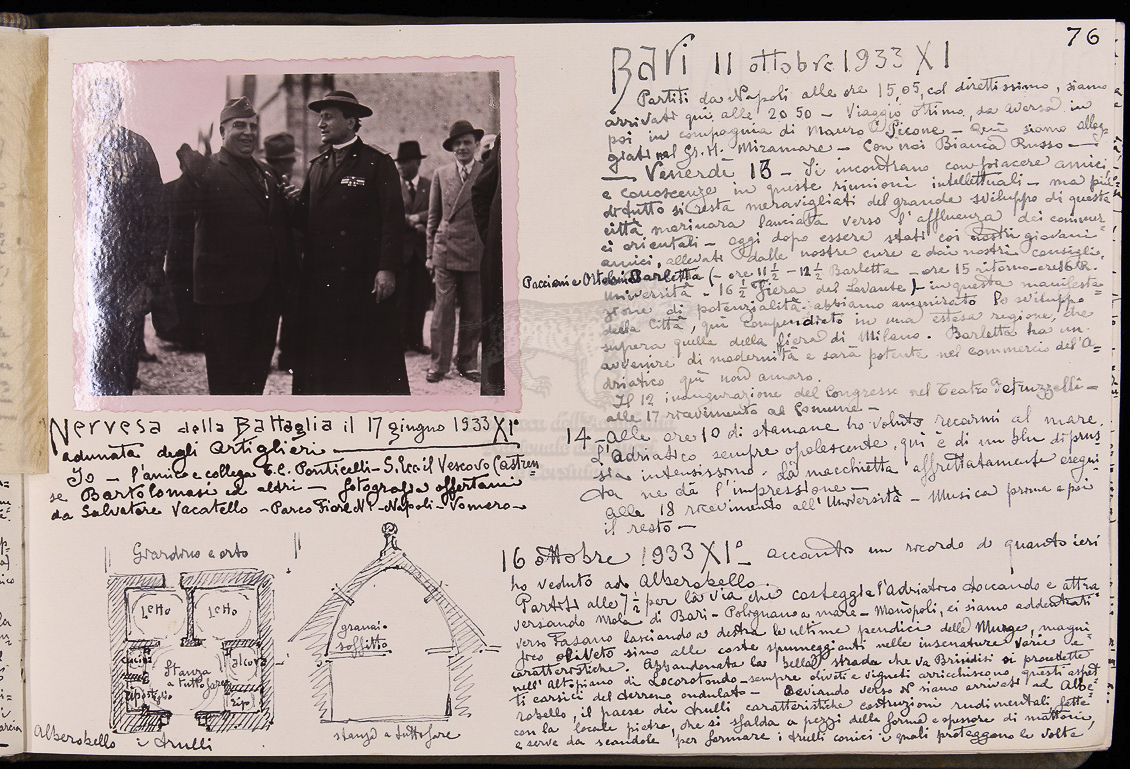 76
Bari 11 ottobre 1933 XI
Partiti da Napoli alle ore 15,05, col direttissimo, siamo
arrivati qui, alle 20 50 – Viaggio ottimo, da Aversa in
poi in compagnia di Mauro Picone – Qui siamo allog-
giati nel Gr. H. Miramare – Con noi Bianca Russo –
Venerdì 13 – Si incontrano con piacere amici
e conoscenze in queste riunioni intellettuali – ma più
di tutto si resta meravigliati del grande sviluppo di questa
città marinara lanciata verso l'affluenza dei commer
ci orientali – oggi dopo essere stati coi nostri giovani
amici, allevati dalle nostre cure e dai nostri consigli,
Pacciani e Ortolani Barletta (– ore 11 ½ – 12 ½ Barletta – ore 15 ritorno – ore 16 la
Università – 16 ½ Fiera del Levante) – in questa manifesta-
zione di potenzialità abbiamo ammirato lo sviluppo
della Città, qui compendiato in una estesa regione, che
supera quella della fiera di Milano. Barletta ha un
avvenire di modernità e sarà potente nel commercio del'A-
driatico qui non amaro.
Il 12 inaugurazione del Congresso nel Teatro Petruzzelli –
alle 17 ricevimento al Comune –
14 – Alle ore 10 di stamane ho voluto recarmi al mare.
L'Adriatico sempre opalescente, qui è di un blu di prus
sia intensissimo. La macchietta affrettatamente esegui
ta ne dà l'impressione –
Alle 18 ricevimento all'Università – Musica prima e poi
il resto –
16 ottobre 1933 XI° accanto un ricordo di quanto ieri
ho veduto ad Alberobello.
Partiti alle 7 ½ per la via che costeggia l'Adriatico toccando e attra
versando Mola di Bari – Polignano a mare – Monopoli, ci siamo addentrati
verso Fasano lasciando a destra le ultime pendici delle Murge, magni
fico oliveto sino alle coste spumeggianti nelle insenature varie e
caratteristiche. Abbandonata la bella strada che va Brindisi si procedette
nell'Altopiano di Locorotondo – sempre oliveti e vigneti arricchiscono questi aspet
ti carsici del terreno ondulato – Deviando verso N° siamo arrivati ad Albe-
robello, il paese dei trulli caratteristiche costruzioni rudimentali fatte
con la locale pietra, che si sfalda a pezzi della forma e spessore di mattoni,
e serve da scandole, per formare i trulli conici i quali proteggono le volte,
Nervesa della Battaglia il 17 giugno 1933 XI°
adunata degli Artiglieri –
Io – l'amico e collega T.C. Ponticelli – S. Ecc. il Vescovo Castren
se Bartolomasi ed altri – fotografia offertami
da Salvatore Vacatello – Parco Fiore N° – Napoli – Vomero –
Giardino e orto
Letto
Letto
cucina
Stanza
a tutto fare
alcova
ripostiglio
Rip°
granai-
soffitto
stanza a tutto fare
Alberobello i trulli